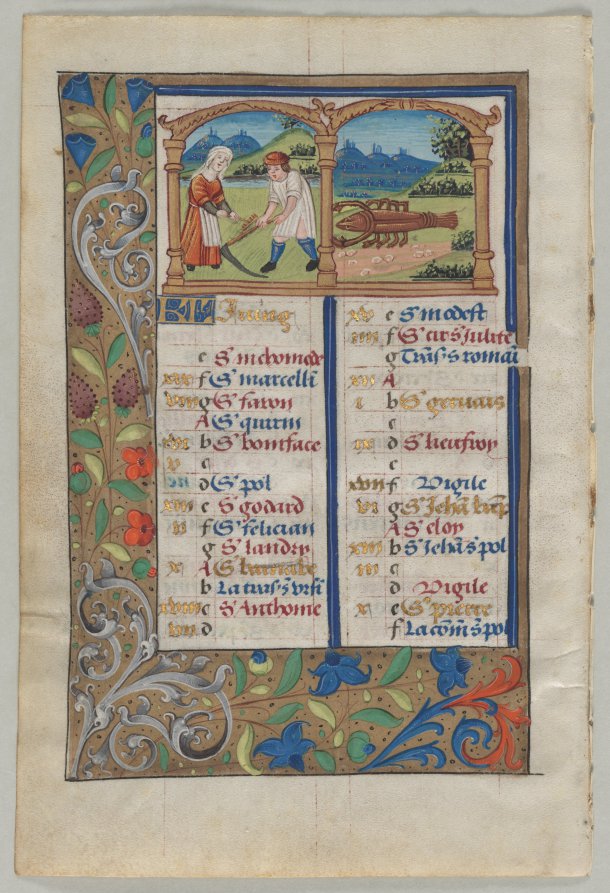 KL Juing
e S' nichomede
f S' marcelli
g S' faron
A S' quirin
b S' boniface
v c
d S' pol
xiii e S' godard
ii f S' felician
g S' landry
x A S' barnabe
b La trās s' vrsi
xviii c S' Anthoine
vii d
xv e S' modest
iiii f S' cir s' Julite
g Trās s romai
xii A
i b S' geruais
c
ix d S' lieufroy
e
xvii f Vigile
vi g S' Jehā bap
A S' eloy
xiiii b S' Jehā s pol
iii c
d Vigile
xi e S' pierre
f La cōm s pol